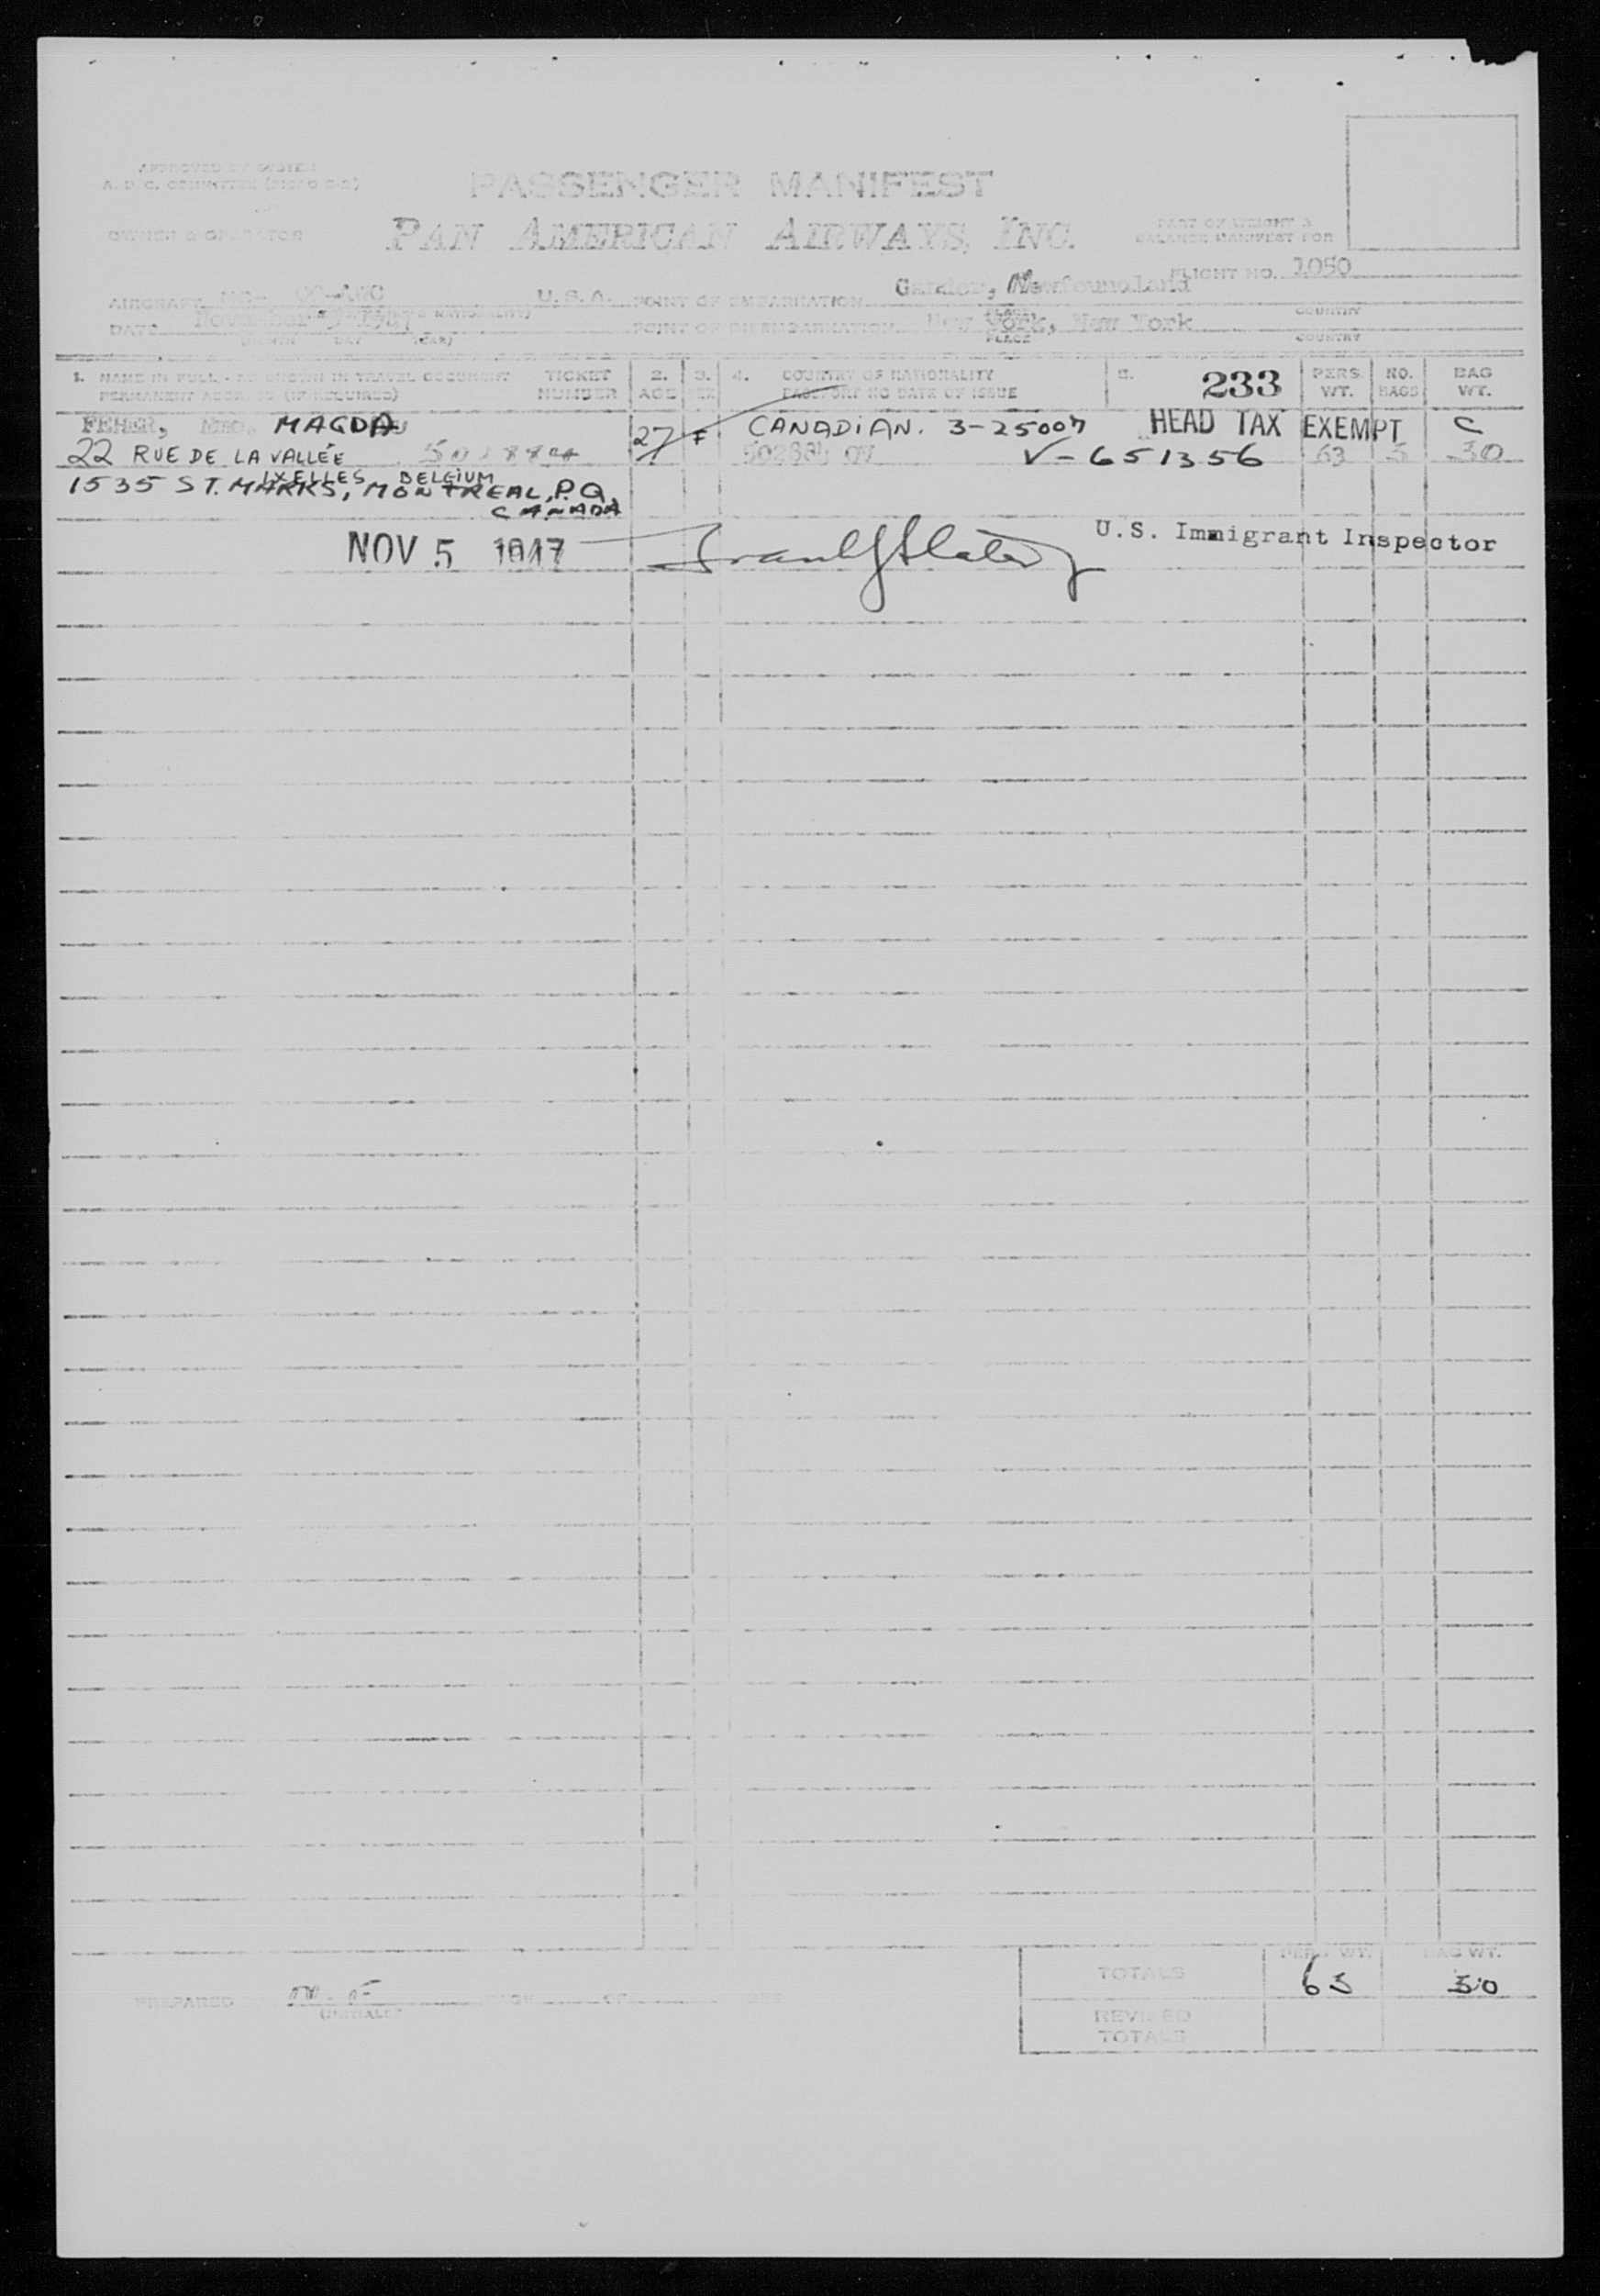 APPROVED BY SYSTEM
PASSENGER MANIFEST
PAN AMERICAN AIRWAYS, INC.
OWNER & OPERATOR
PART OF WEIGHT &
BALANCE MANIFEST FOR
FLIGHT NO. 1050
AIRCRAFT U.S.A. POINT OF EMBARKATION Gander, Newfoundland
PLACE COUNTRY
DATE November 5 POINT OF DISEMBARKATION New York, New York
PLACE COUNTRY
1. NAME IN FULL - AS SHOWN IN TRAVEL DOCUMENT TICKET 2. 3. 4. COUNTRY OF NATIONALITY 5. 233 PERS. NO. BAG
PERMANENT ADDRESS (IF REQUIRED) NUMBER AGE SEX PASSPORT NO DATE OF ISSUE WT. BAGS WT.
FEHER, MAGDA 27 F CANADIAN. 3-25007 HEAD TAX EXEMPT C
22 RUE DE LA VALLÉE V-651356 63 5 30
IXELLES BELGIUM
1535 ST. MARKS, MONTREAL, P.Q.
CANADA
NOV 5 1947 U.S. Immigrant Inspector
PERS WT. BAG WT.
TOTALS 63 30
PREPARED M. F
(INITIALS)
REVISED
TOTALS